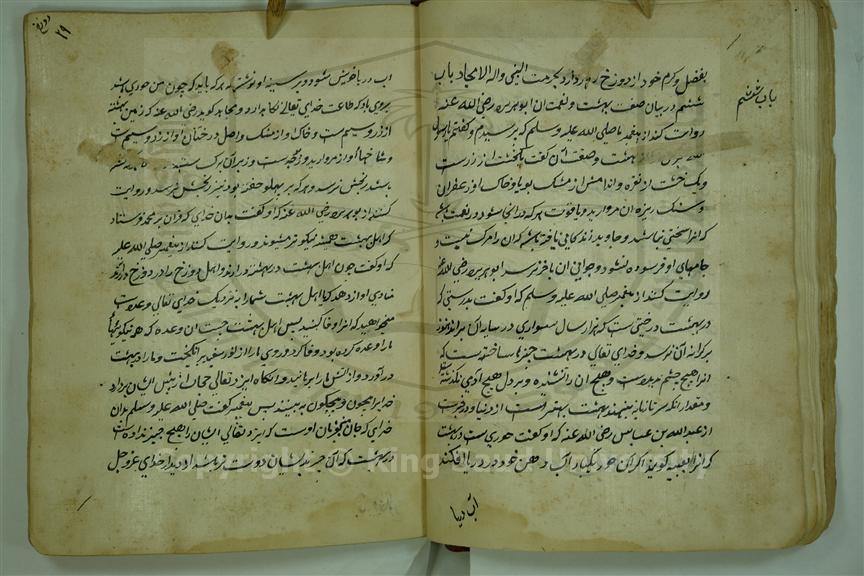 باب ششم
بفضل وکرم خود از دوزخ دور دارد بحرمت النبی واله الامجاد باب
ششم در بیان صفت بهشت و لغت ان ابو هریره رضی الله عنه
روایت کند از پیغمبر ما صلی الله علیه وسلم که پرسیدم و گفتم یا رسول
بهشت وصفت ان گفت یک خشت از زر است
ویک خشت از نقره واندامش از مشک بویا وخاک از زعفران
وسنک ریزه ان مروارید و یاقوت هر که درانجا شود در نعمت باشد
که انرا سختی نباشد و جاوید زندگانی یافته باشد که ان را مرک نیست و
جامهای او فرسوده نشود وجوانی ان باخر نرسد ابو هریره رضی الله عنه
روایت کند از پیغمبر صلی الله علیه وسلم که او گفت بدرستی که
در بهشت درختی ست که هزار سال سواری در سایه ان براند هنوز
برکرانه ان نرسد و خدای تعالی در بهشت چیزها ساخته است که
انرا هیچ چشم ندیده است و هیچ ان را نشنده و بر دل هیچ آدمی نگذشته
و مقدار انکه سر تازیانه بنهند بهشت بهتر است از دنیا و هرچه دروست
از عبدالله بن عباس رضی الله عنه که او گفت حوری ست در بهشت
که انرا لعبه گویند اگر ان حور یکبار آب دهن خود در دریا افکند
آب دریا
دوزخ
۲۹
اب دریا خویش شود و بر سینه او نوشته هر که باید که چون من حوری باشد
بروی باد که طاعت خدای تعالی نگاهدارد و مجاهد گوید رضی الله عنه که زمین بهشت
از زر و سیم است و خاک او از مشک و اصل درختان او از زر و سیم است
و شاخها او از مروارید و زبرجد است و زیر ان برک
باشد رنجش نرسد و هر که بر پهلو خفته بود نیز رنجش نرسد و روایت
کنند از ابو هریره رضی الله عنه که او گفت بدان خدای که قران بر محمد فرستاد
که اهل بهشت همیشه نیکوتر میشوند و روایت کنند از پیغمبر صلی الله علیه
که او گفت چون اهل بهشت در بهشت درایند و اهل دوزخ را در دوزخ درارند
منادی اواز دهد که یا اهل بهشت شما را بنزدیک خدای تعالی وعده است
میخواهید که انرا وفا کنید پس اهل بهشت چیست ان وعده که هر نیکوئیها
ما را وعده کرده بود وفا کرد و روی ما را از نور سفید برانگیخت و ما را در بهشت
در آورد و از اتش ما را برهانید وانکاه ایزد تعالی حجاب از پیش ایشان بردارد
خدایرا بیچون و بیچگون به بینند پس پیغمبر گفت صلی الله علیه وسلم بدان
خدای که جان من بفرمان اوست که ایزد تعالی ایشان را هیچ چیز نداده است
در بهشت که ان چیز بدیشان دوست تر باشد از دیدار خدای عزوجل
Copyright © King Saud University